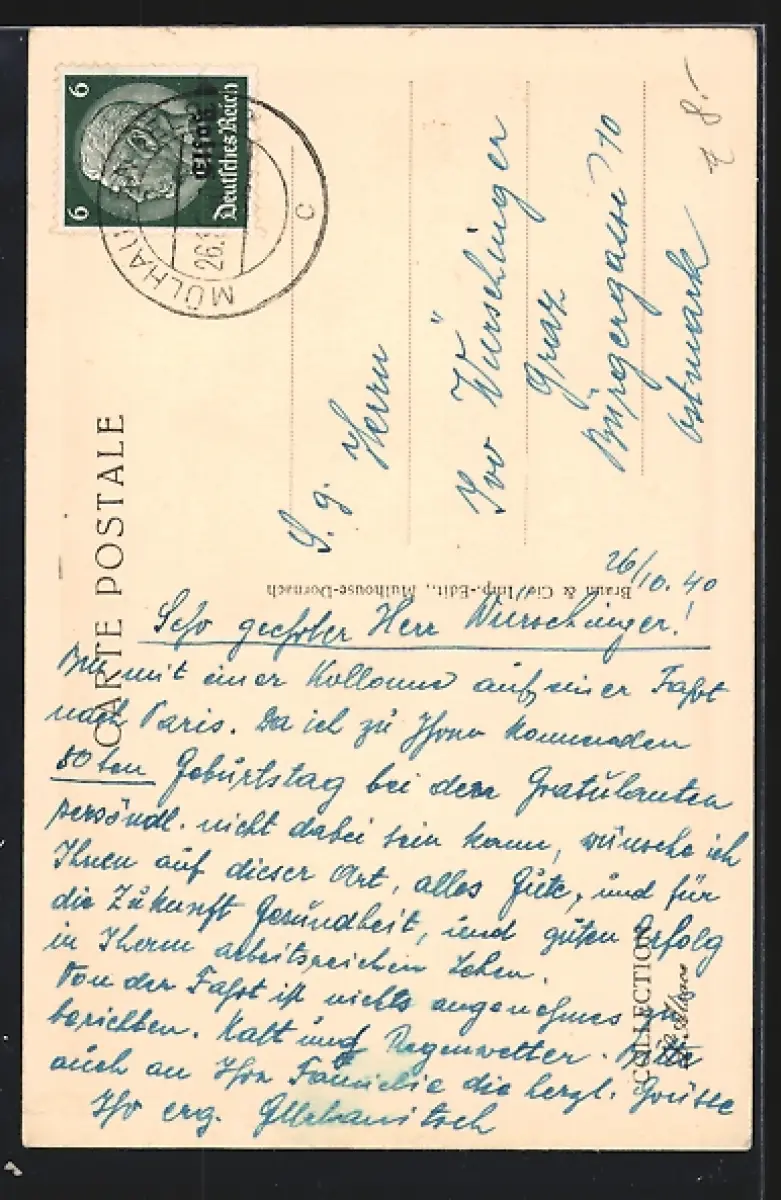 6 6
Deutsches Reich
Elsaß
MÜLHAUSEN (ELS)
26.1
c
CARTE POSTALE
S. g. Herrn
Ivo Würschinger
Graz
Bürgergasse 10
Ostmark
8.-
Braun & Cie, Imp.-Edit., Mulhouse-Dornach
26/10. 40
Sehr geehrter Herr Würschinger!
Bin mit einer Kollonne auf einer Fahrt
nach Paris. Da ich zu Ihrem kommenden
50ten Geburtstag bei den Gratulanten
persöndl. nicht dabei sein kann, wünsche ich
Ihnen auf dieser Art, alles Gute, und für
die Zukunft Gesundheit, und guten Erfolg
in Ihrem arbeitsreichen Leben.
Von der Fahrt ist nichts angenehmes zu
berichten. Kalt und Regenwetter. Bitte
auch an Ihre Familie die herzl. Grüsse
Ihr erg.
COLLECTION